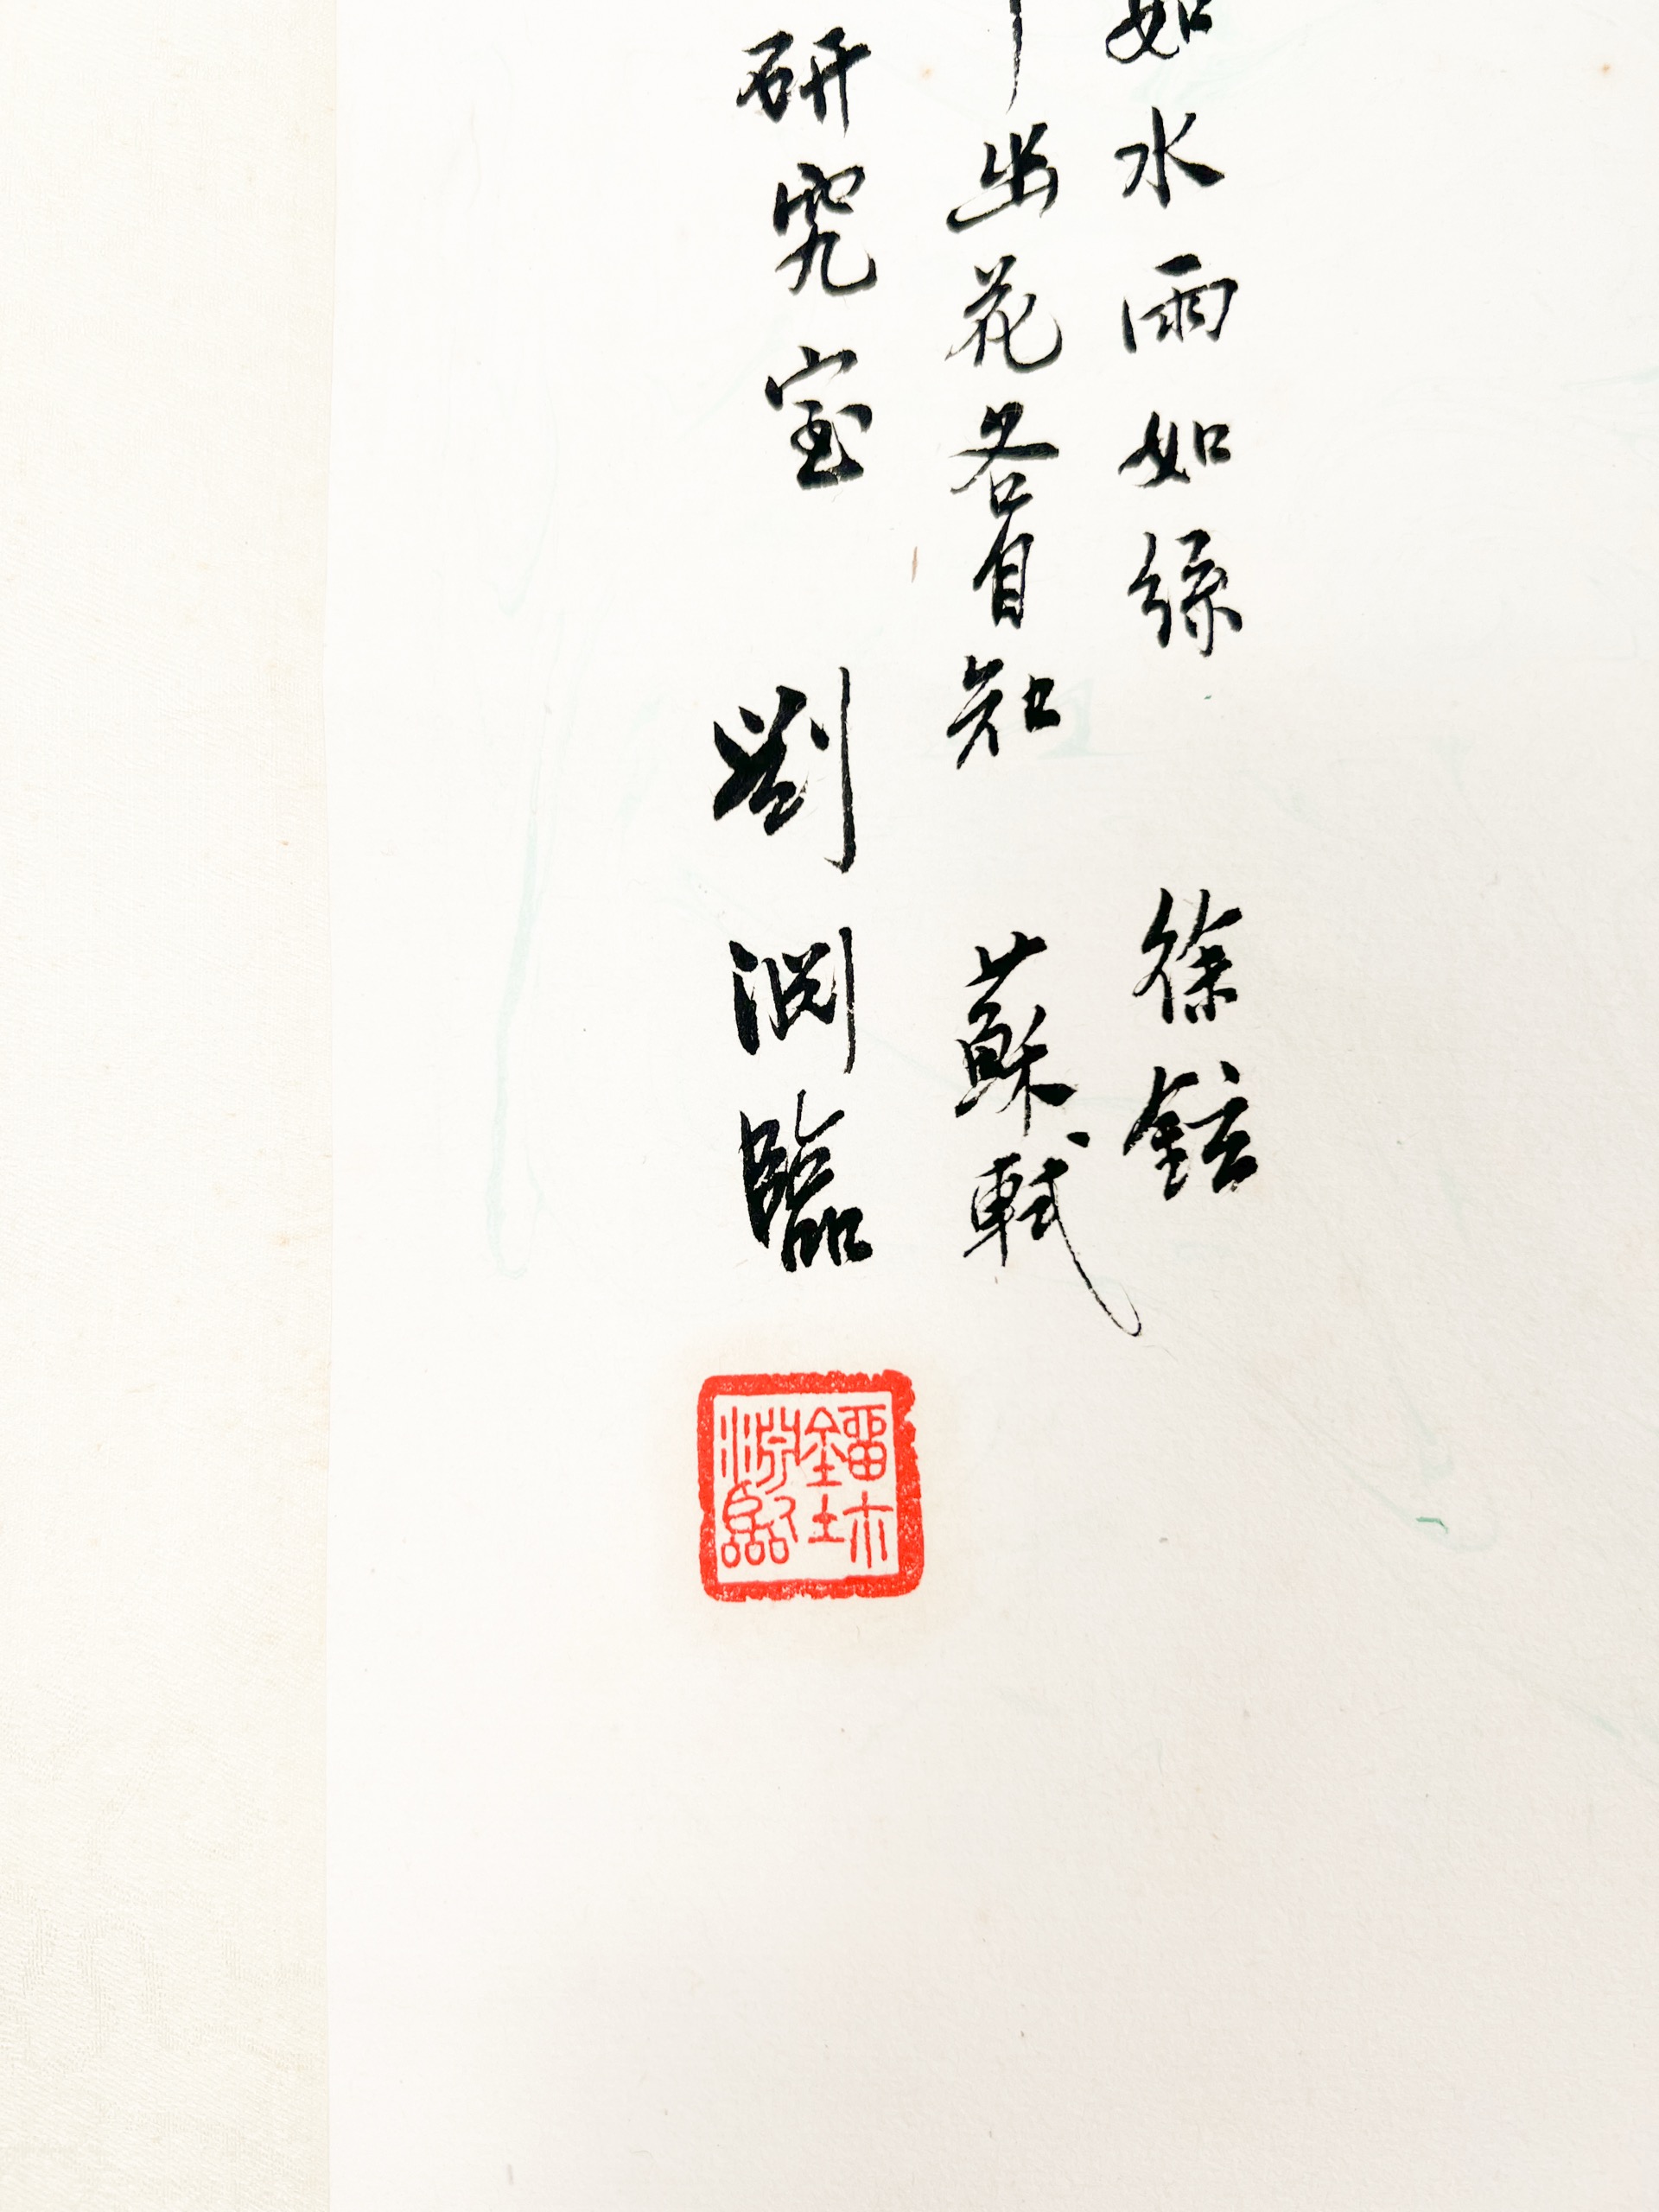 如水雨如絲 徐鉉
出花各自知 蘇軾
研究室 劉淵臨
鎦
淵臨